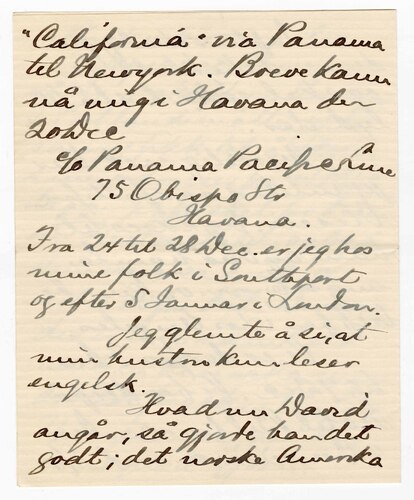 "California" via Panama
til Newyork. Breve kann
nå mig i Havana den
20 Dec
c/o Panama Pacific Line
75 Obispo Str
Havana.
Fra 24 til 28 Dec. er jeg hos
mine folk i Southport
og efter 5 Januar i London.
Jeg glemte å si, at
min hustru kun leser
engelsk.
Hvad nu David
angår, så gjorde han det
godt i det norske Amerika